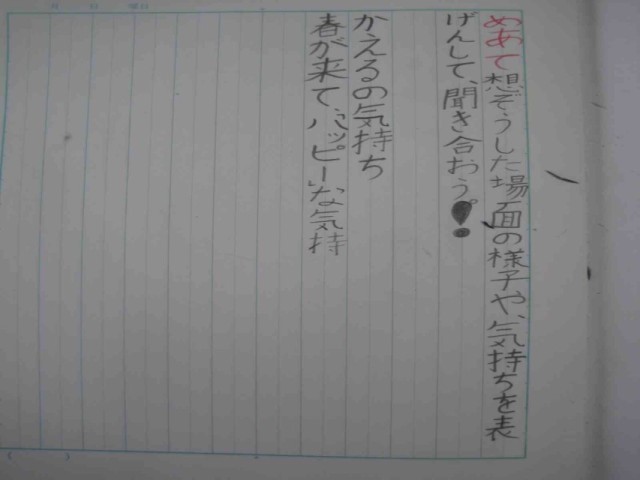 めあて想ぞうした場面の様子や、気持ちを表
げんして、聞き合おう！
かえるの気持ち
春が来て、"ハッピー"な気持